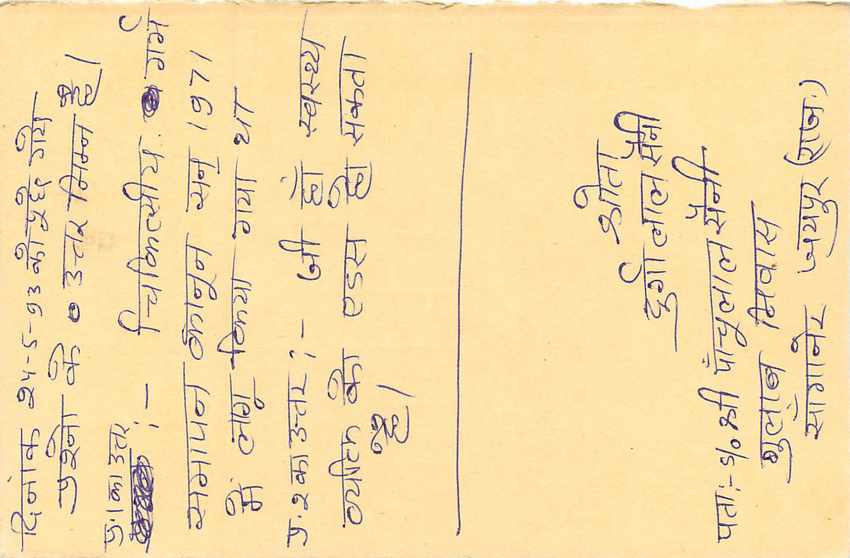 दिनांक २४-5-93 को पूछे गये
प्रश्नो के उत्तर निम्न है।
प्र.1 का उत्तर :- चिकित्सीय गर्भ
समापन कानून सन् 1971
में लागु किया गया था
प्र.२ का उत्तर :- जी हाँ स्वस्थ्य
व्यक्ति को एडस हो सकता
है।
श्रोता
दुर्गा लाल सैनी
पता:- S/o श्री पाँचुलाल सैनी
गुलाब निवास
साँगानेर जयपुर (राज.)